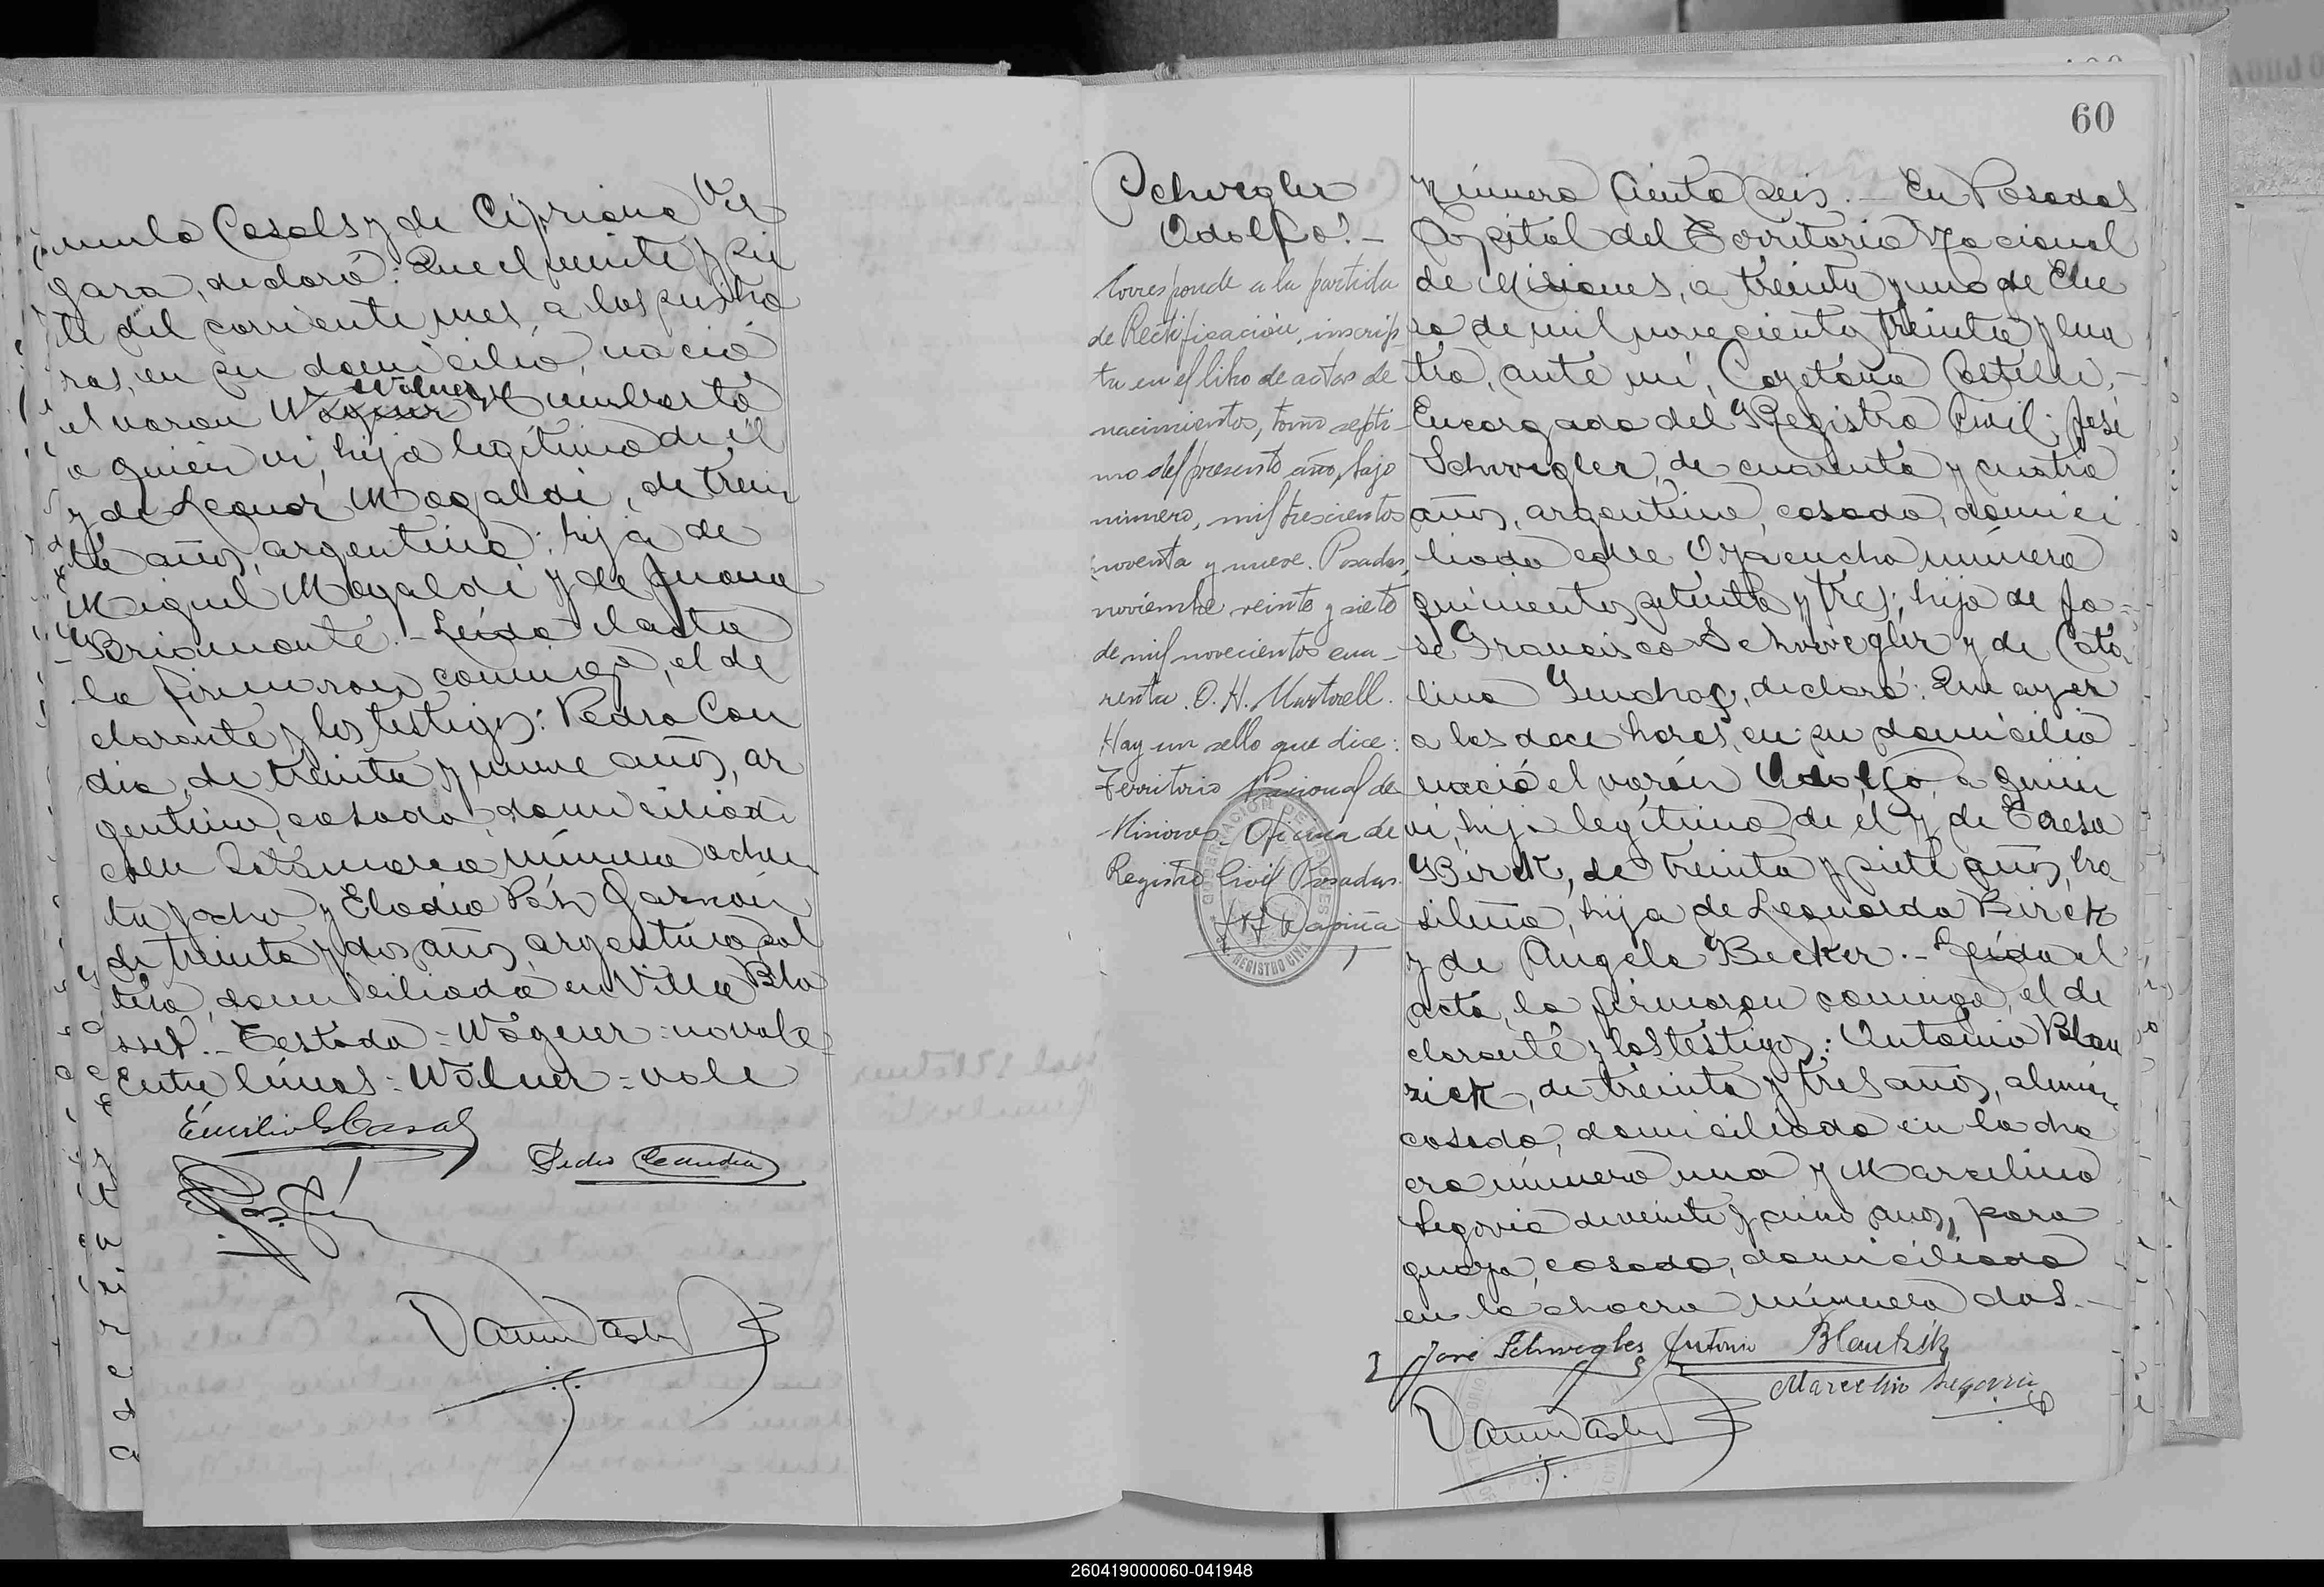 munda Casals y de Cipriana Ver
gara, declaró: Que el veinte y sie
te del corriente mes, a las ho
ras, en su domicilio, nació
Wolner
el varon Wagner Humberto
a quien vi, hijo legítimo de él
y de Leonor Magaldi, de trein
ta años, argentina; hija de
Miguel Magaldi y de Juana
Briamonte.- Leída el acta
la firmaron conmigo, el de
clarante y los testigos: Pedro Can
dia, de treinta y nueve años, ar
gentino, casado, domiciliado
calle número ochen
ta y ocho y Elodio Páz Garzón
de treinta y dos años, argentino, sol
tero, domiciliado en Villa Blo
sset.- Testado = Wagner = no vale
Entre líneas = Wolner = vale
Emilio Casals
Pedro Candia
60
Schwegler
Adolfo.-
Corresponde a la partida
de Rectificación, inscrip-
ta en el libro de actas de
nacimientos, tomo sépti-
mo del presente año, bajo
número, mil trescientos
noventa y nueve. Posadas,
noviembre veinte y siete
de mil novecientos cua-
renta. O. H. Martorell.
Hay un sello que dice:
Territorio Nacional de
Misiones. Oficina de
Registro Civil Posadas.
REGISTRO CIVIL
Número Ciento Seis.- En Posadas
Capital del Territorio Nacional
de Misiones, a treinta y uno de Ene
ro de mil novecientos treinta y cua
tro, ante mí, Cayetano Castelli,-
Encargado del Registro Civil; José
Schwegler, de cuarenta y cuatro
años, argentino, casado, domici
liado calle Ayacucho número
quinientos setenta y tres; hijo de Jo-
sé Francisco Schwegler y de Cata
lina, declaró: Que ayer
a las doce horas, en su domicilio
nació el varón Adolfo, a quien
vi, hijo legítimo de él y de Teresa
Birck, de treinta y siete años, bra
sileña, hija de Leonardo Birck
y de Angela Becker.- Leída el
acta, la firmaron conmigo, el de
clarante y los testigos: Antonio Blau
zick, de treinta y tres años, alemán,
casado, domiciliado en la cha
cra número una y Marcelino
Segovia de veinte y cinco años, para
guayo, casado, domiciliado
en la chacra número dos.-
José Schwegler Antonio Blautzik
Marcelino Segovia
260419000060-041948